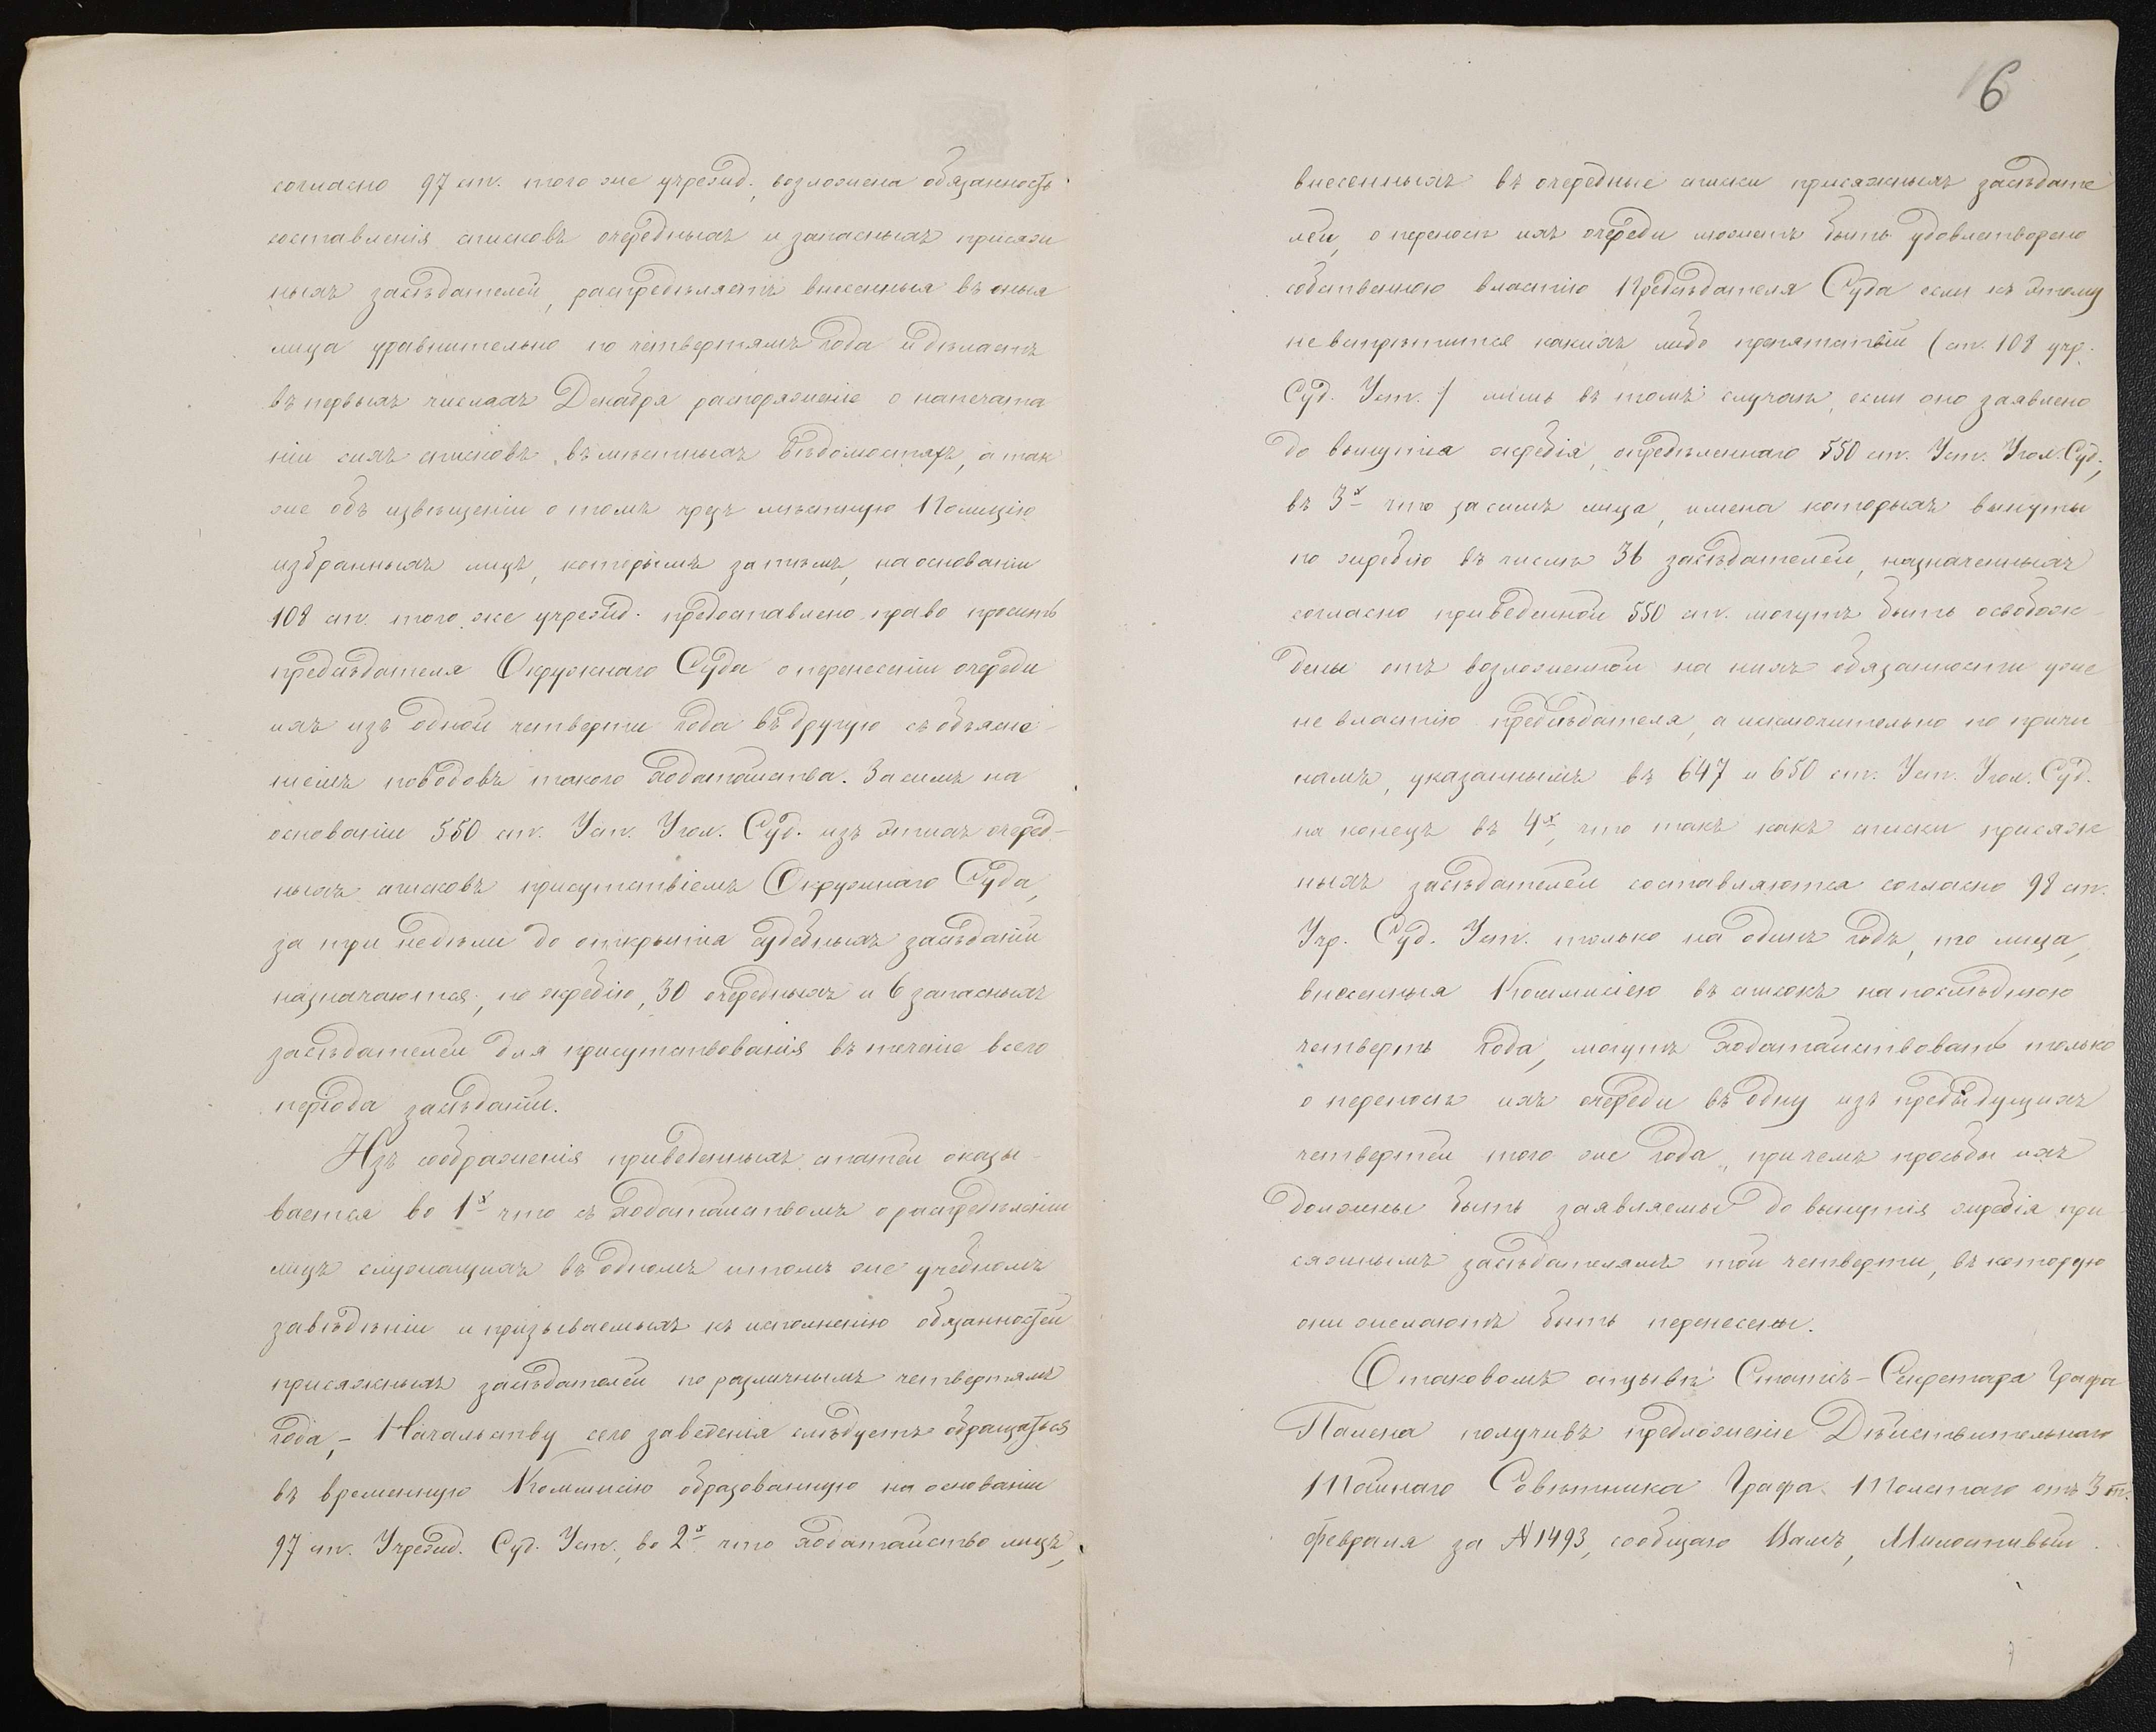 согласно 97 ст. того же учрежд., возложена обязанность
составленія списковъ очередныхъ и запасныхъ присяж
ныхъ засѣдателей, распредѣляетъ внесенныя въ оныя
лица уравнительно по четвертямъ года и дѣлаетъ
въ первыхъ числахъ Декабря распоряженіе о напечата
ніи сихъ списковъ въ мѣстныхъ вѣдомостяхъ, а так
же объ извѣщеніи о томъ чрезъ мѣстную Полицію
избранныхъ лицъ, которымъ затѣмъ, на основаніи
108 ст. того же учрежд. предоставлено право просить
предсѣдателя Окружнаго Суда о перенесеніи очереди
ихъ изъ одной четверти года въ другую съ объясне-
ніемъ поводовъ такого ходатайства. Засимъ на
основаніи 550 ст. Уст. Угол. Суд. изъ этихъ очеред-
ныхъ списковъ присутствіемъ Окружнаго Суда,
за три недѣли до открытія судебныхъ засѣданій
назначаются, по жребію, 30 очередныхъ и 6 запасныхъ
засѣдателей для присутствованія въ теченіе всего
періода засѣданій.
Изъ соображенія приведенныхъ статей оказы-
вается во 1х что съ ходатайствомъ о распредѣленіи
лицъ служащихъ въ одномъ и томъ же учебномъ
завѣдѣніи и призываемыхъ къ исполненію обязанностей
присяжныхъ засѣдателей по различнымъ четвертямъ
года,- Начальству сего заведенія слѣдуетъ обращаться
въ временную Коммисію образованную на основаніи
97 ст. Учрежд. Суд. Уст., во 2х что ходатайство лицъ,
6
внесенныхъ въ очередные списки присяжныхъ засѣдате
лей, о переносѣ ихъ очереди можетъ быть удовлетворено
собственною властію Предсѣдателя Суда если къ этому
не встрѣтится какихъ либо препятствій (ст. 108 учр.
Суд. Уст.) лишь въ томъ случаѣ, если оно заявлено
до вынутія жребія, опредѣленнаго 550 ст. Уст. Угол. Суд.,
въ 3х что засимъ лица, имена которыхъ вынуты
по жребію въ числѣ 36 засѣдателей, назначенныхъ
согласно приведенной 550 ст. могутъ быть освобож-
дены отъ возложенной на нихъ обязанности уже
не властію предсѣдателя, а исключительно по причи-
намъ, указаннымъ въ 647 и 650 ст. Уст. Угол. Суд.
на конецъ въ 4х, что такъ какъ списки присяж
ныхъ засѣдателей составляются согласно 98 ст.
Учр. Суд. Уст. только на одинъ годъ, то лица,
внесенныя Коммисіею въ списокъ на послѣднюю
четверть года, могутъ ходатайствовать только
о переносѣ ихъ очереди въ одну изъ предыдущихъ
четвертей того же года, причемъ просьбы ихъ
должны быть заявляемы до вынутія жребія при-
сяжнымъ засѣдателямъ той четверти, въ которую
они желаютъ быть перенесены.
О таковомъ отзывѣ Статсъ-Секретаря Графа
Палена получивъ предложеніе Дѣйствительнаго
Тайнаго Совѣтника Графа Толстаго отъ 3
Февраля за № 1493, сообщаю Вамъ, Милостивый